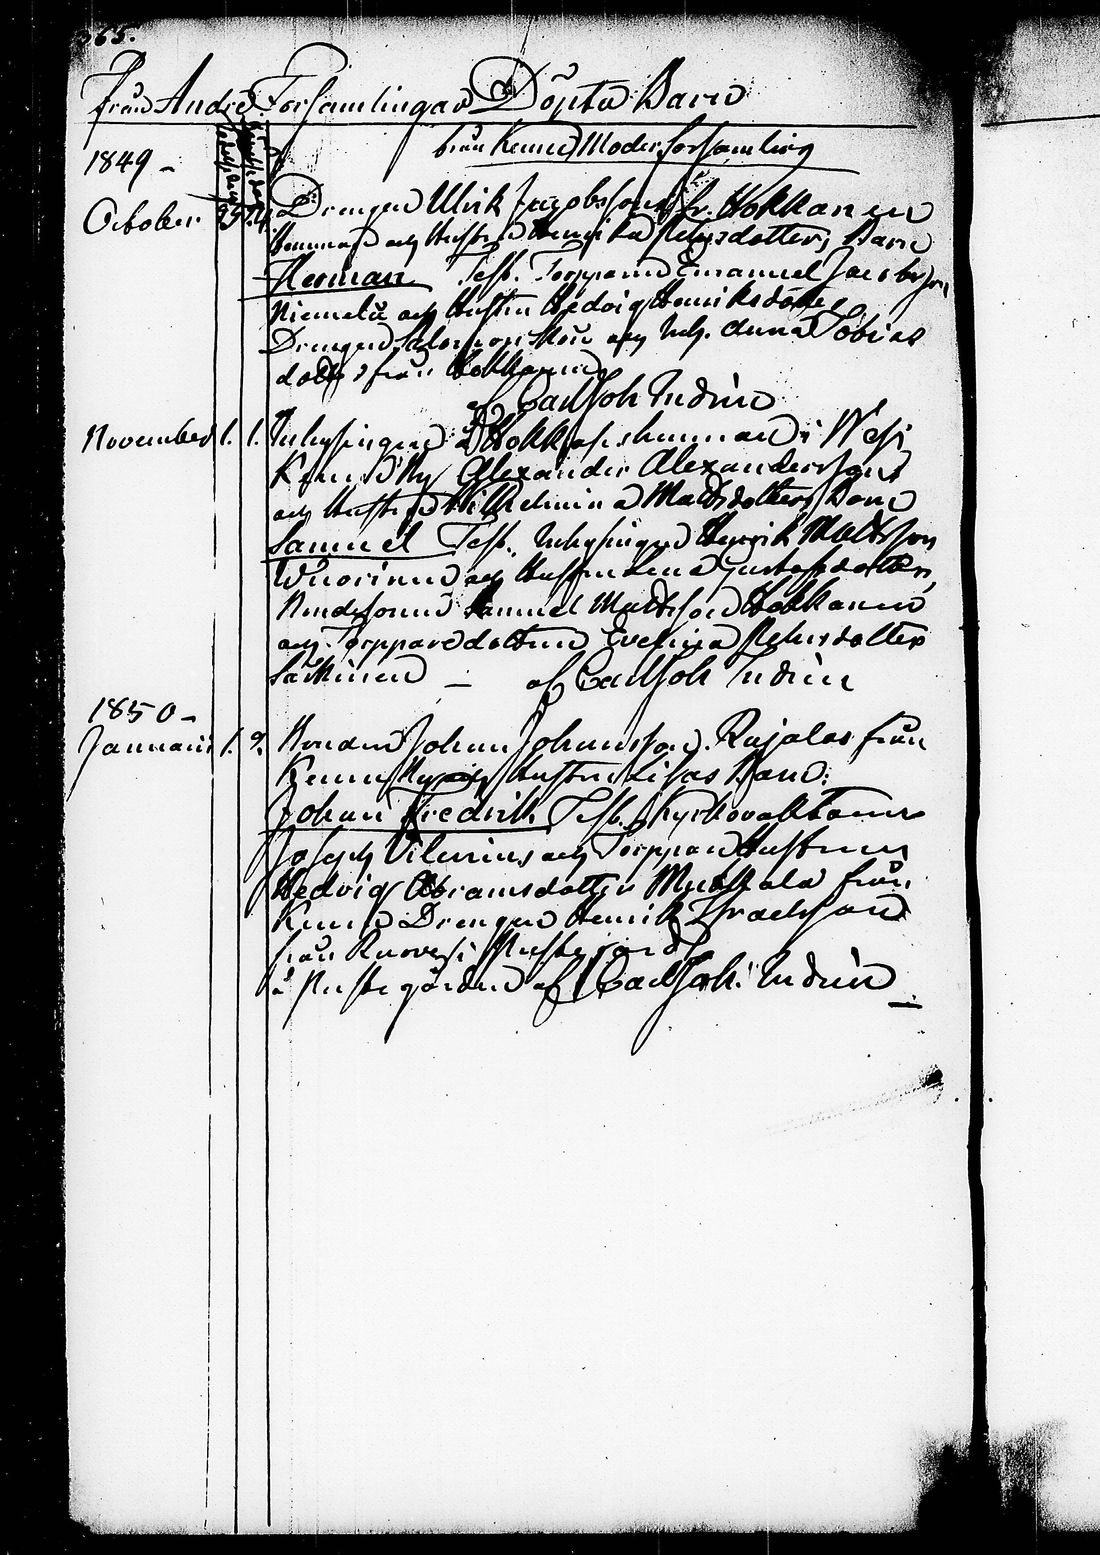 365.
från Andre Församlingar Döpta Barn
från Kemi Moder församling
1849 -
October 25. 24. Drengen Ulrik Jacobssons fr. Hokkanen
hemman och Hustrus Henrika Petersdotters Barn
Herman Test. Torpparen Emanuel Jacobsson
Niemelä och Hustrun Hedvig Henriksdotter
Drengen Salomon och Anna Tobias
dotter från Hokkanen
af Carl Joh Indrén
November 1. 1. Inhysingen å Hokka hemman i
Kemi by Alexander Alexanderssons
och Hustrus Wilhelmina Mattsdotters Barn
Samuel Test. Inhysingen Henrik Mattsson
Wuorinen och Hustrun Lena Gustafsdotter,
Bondesonen Samuel Mattsson Hokkanen
och Torpparedottren Evelina Petersdotter
Särkinen - af Carl Joh Indrén
1850 -
Januarii 1. 9. Bonden Johan Johansson Rajalas från
Kemi by och Hustrun Lisas Barn:
Johan Fredrik Test. Kyrkovaktaren
Joseph Vilenius och Torppar Hustrun
Hedvig Abramsdotter från
Kemi Drengen Henrik Isachsson
från Ruovesi
i Prestegården af Carl Joh. Indrén -